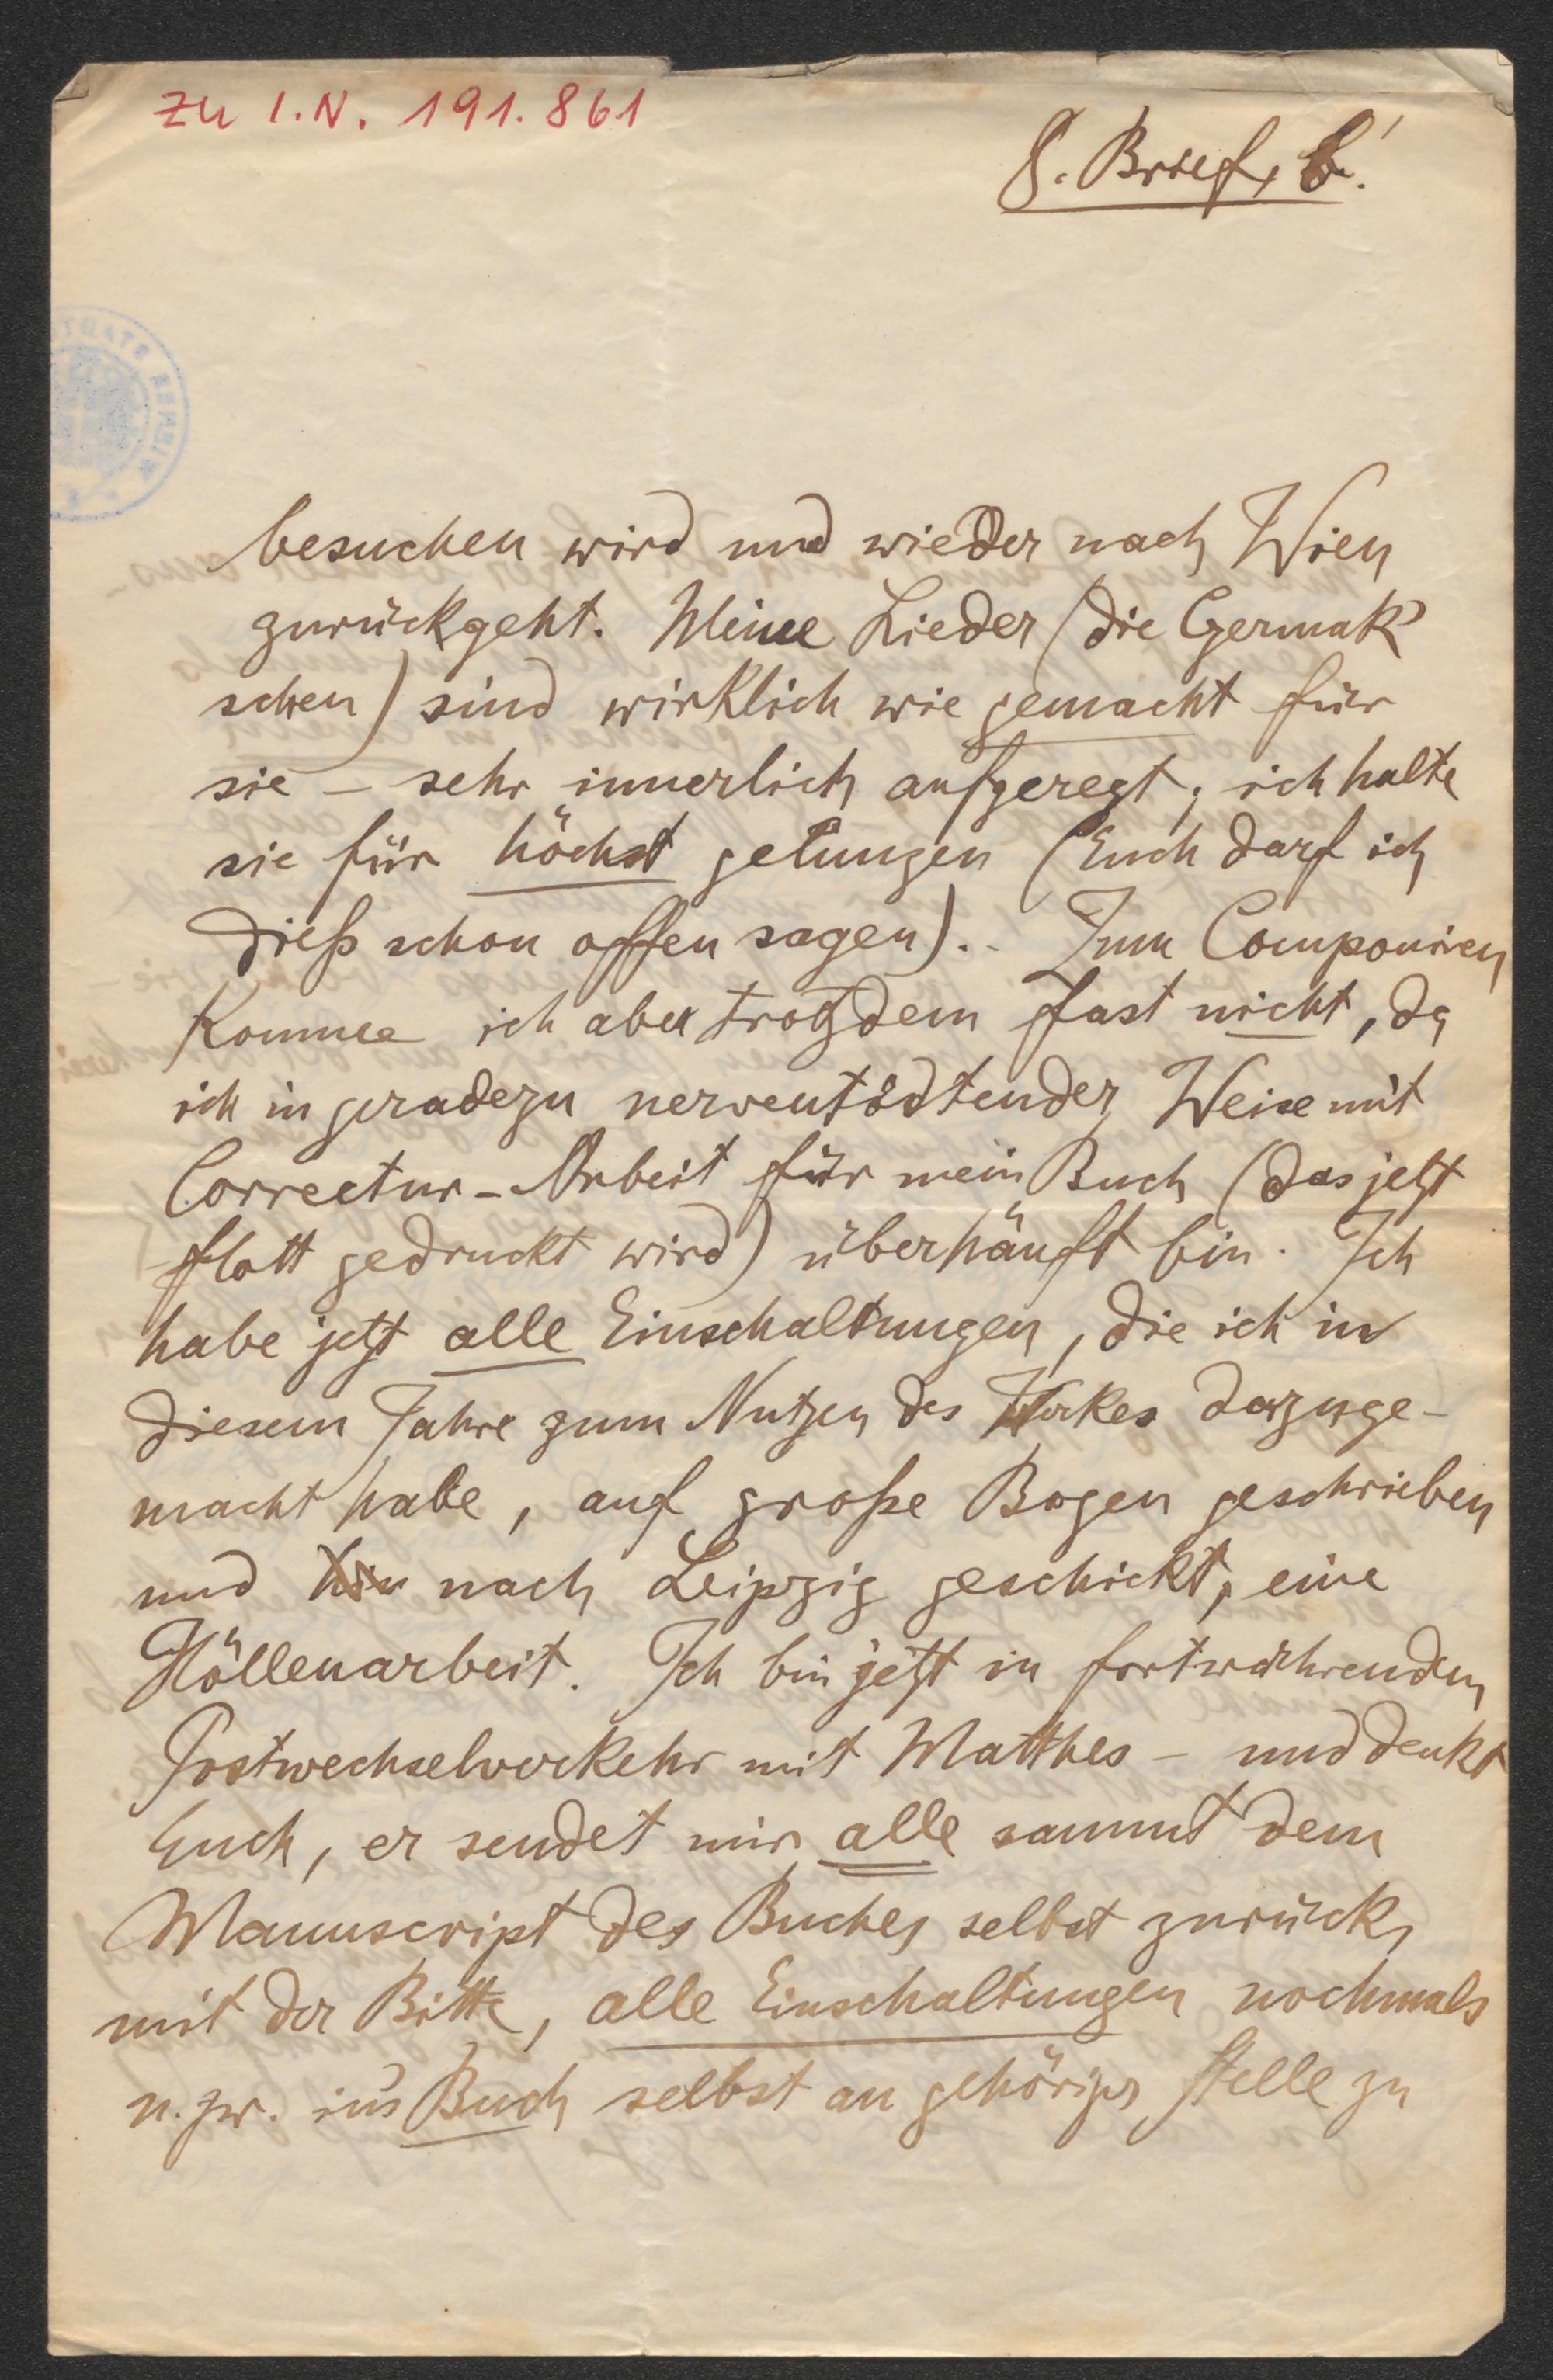 Zu I.N. 191.861
8. Brief, b.
besuchen wird und wieder nach Wien
zurückgeht. Meine Lieder (die Czermak'
schen) sind wirklich wie gemacht für
sie – sehr innerlich aufgeregt; ich halte
sie für höchst gelungen (Euch darf ich
dieß schon offen sagen). – Zum Componiren
komme ich aber trotzdem fast nicht, da
ich in geradezu nerventödtender Weise mit
Correctur-Arbeit für mein Buch (das jetzt
flott gedruckt wird) überhäuft bin. Ich
habe jetzt alle Einschaltungen, die ich in
diesem Jahre zum Nutzen des Werkes dazuge-
macht habe, auf große Bogen geschrieben
und nach Leipzig geschickt, eine
Höllenarbeit. Ich bin jetzt in fortwährendem
Postwechselverkehr mit Matthes – und denkt
Euch, er sendet mir alle sammt dem
Manuscript des Buches selbst zurück,
mit der Bitte, alle Einschaltungen nochmals
u. zw. in's Buch selbst an gehöriger Stelle zu